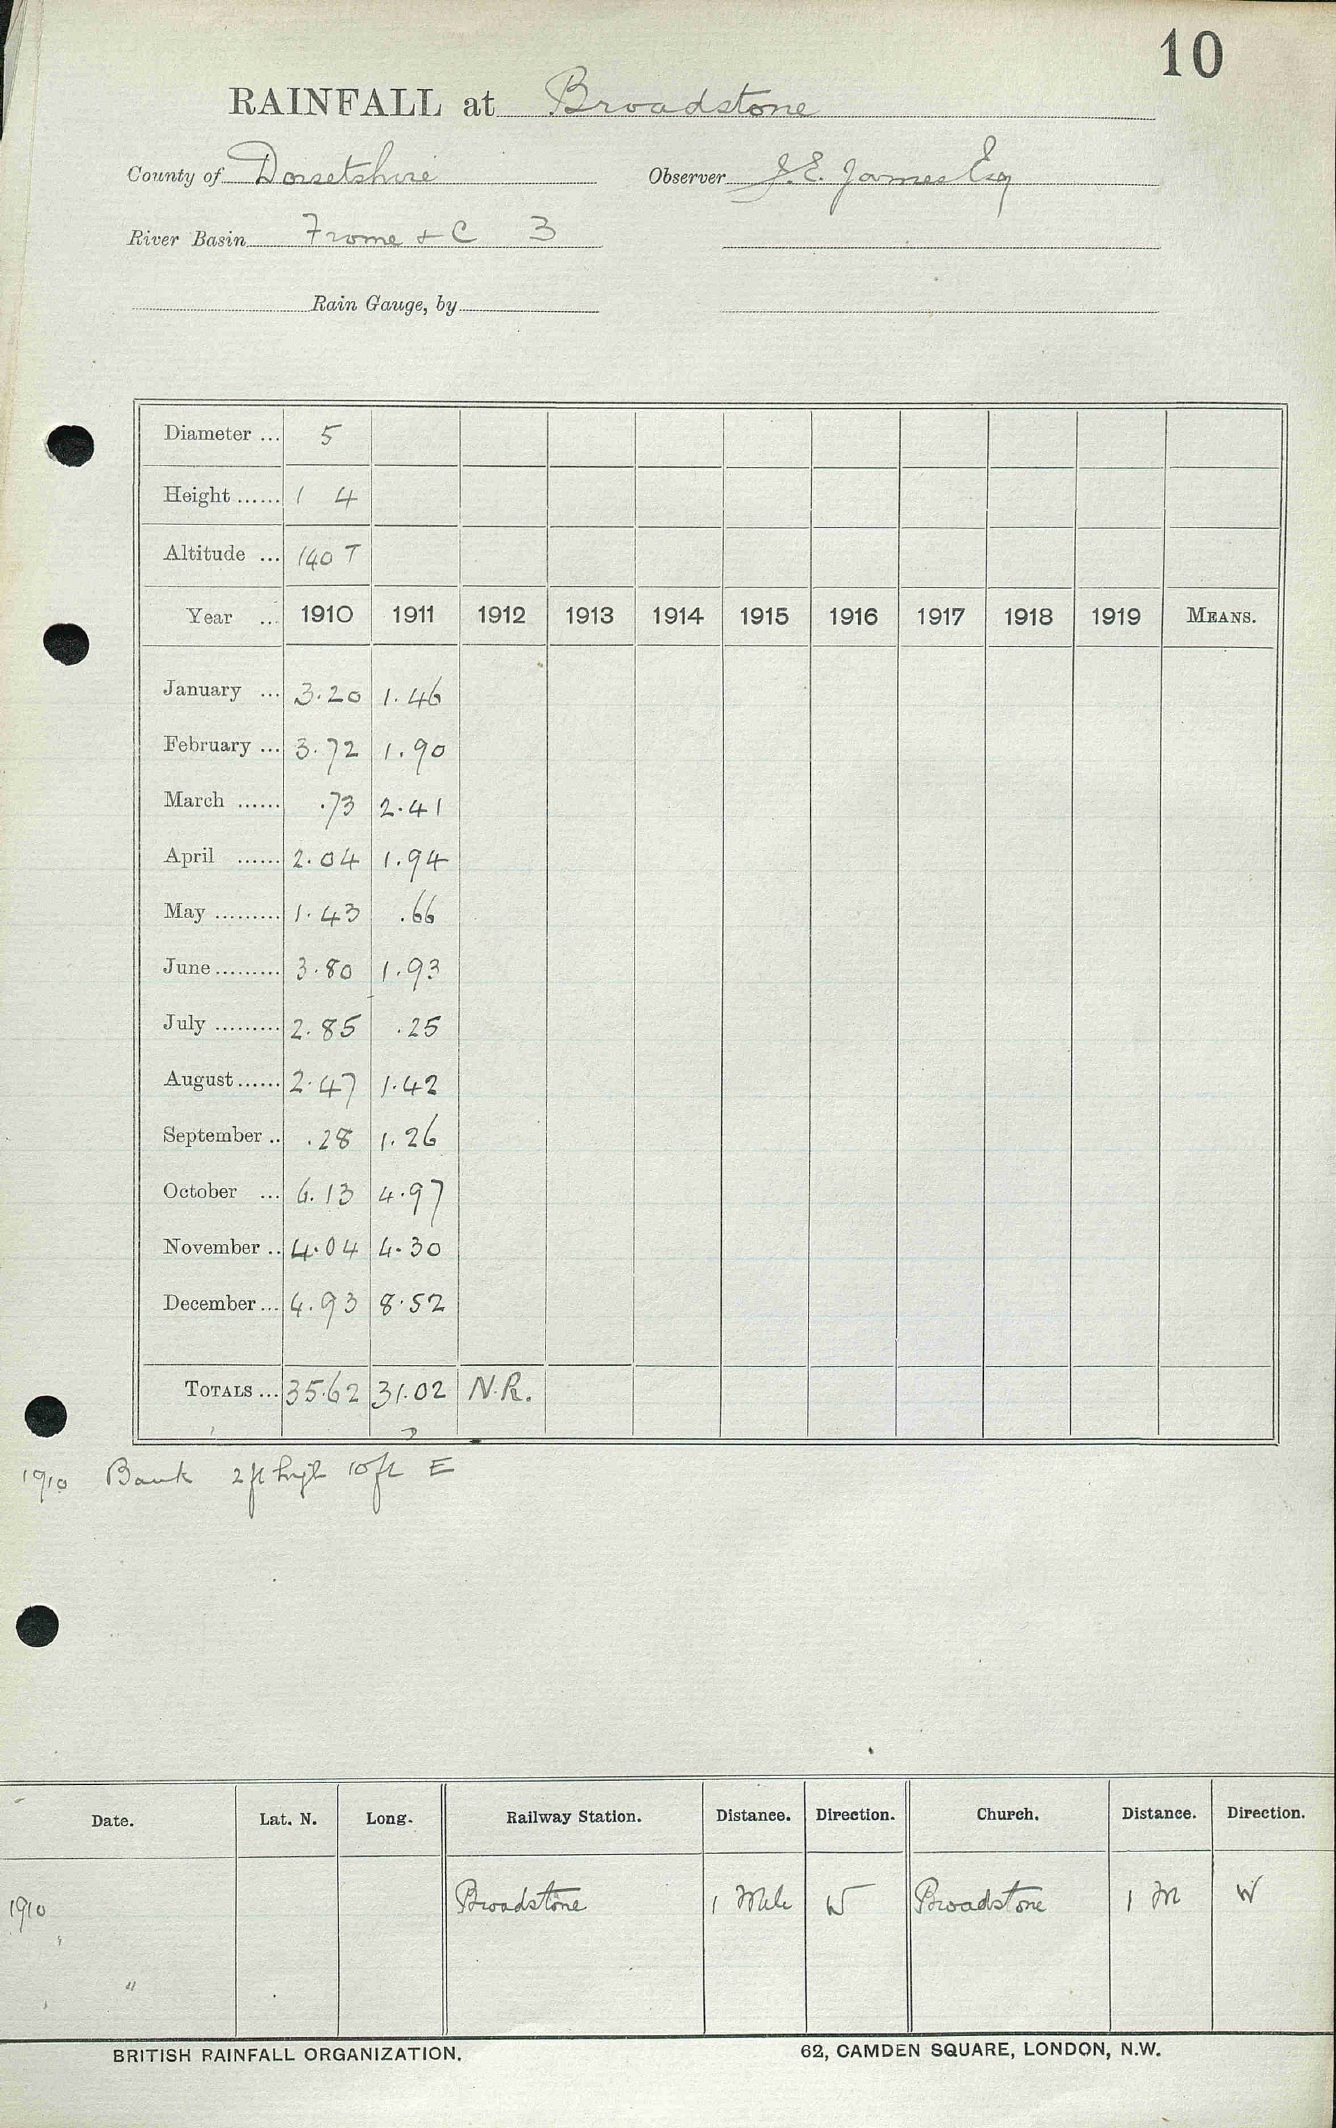 10
RAINFALL at Broadstone
County of Dorsetshire Observer J.E. James Esq
River Basin Frome & C 3
Rain Gauge, by
Diameter ... 5
Height ...... 1 4
Altitude ... 140 T
Year ... 1910 1911 1912 1913 1914 1915 1916 1917 1918 1919 MEANS.
January ... 3.20 1.46
February ... 3.72 1.90
March ...... .73 2.41
April ...... 2.04 1.94
May ......... 1.43 .66
June ......... 3.80 1.93
July ......... 2.85 .25
August ...... 2.47 1.42
September .. .28 1.26
October ... 6.13 4.97
November .. 4.04 4.30
December ... 4.93 8.52
TOTALS ... 35.62 31.02 N.R.
1910 Bank 2ft high 10ft E
Date. Lat. N. Long. Railway Station. Distance. Direction. Church. Distance. Direction.
1910 Broadstone 1 Mile W Broadstone 1 M W
"
BRITISH RAINFALL ORGANIZATION. 62, CAMDEN SQUARE, LONDON, N.W.